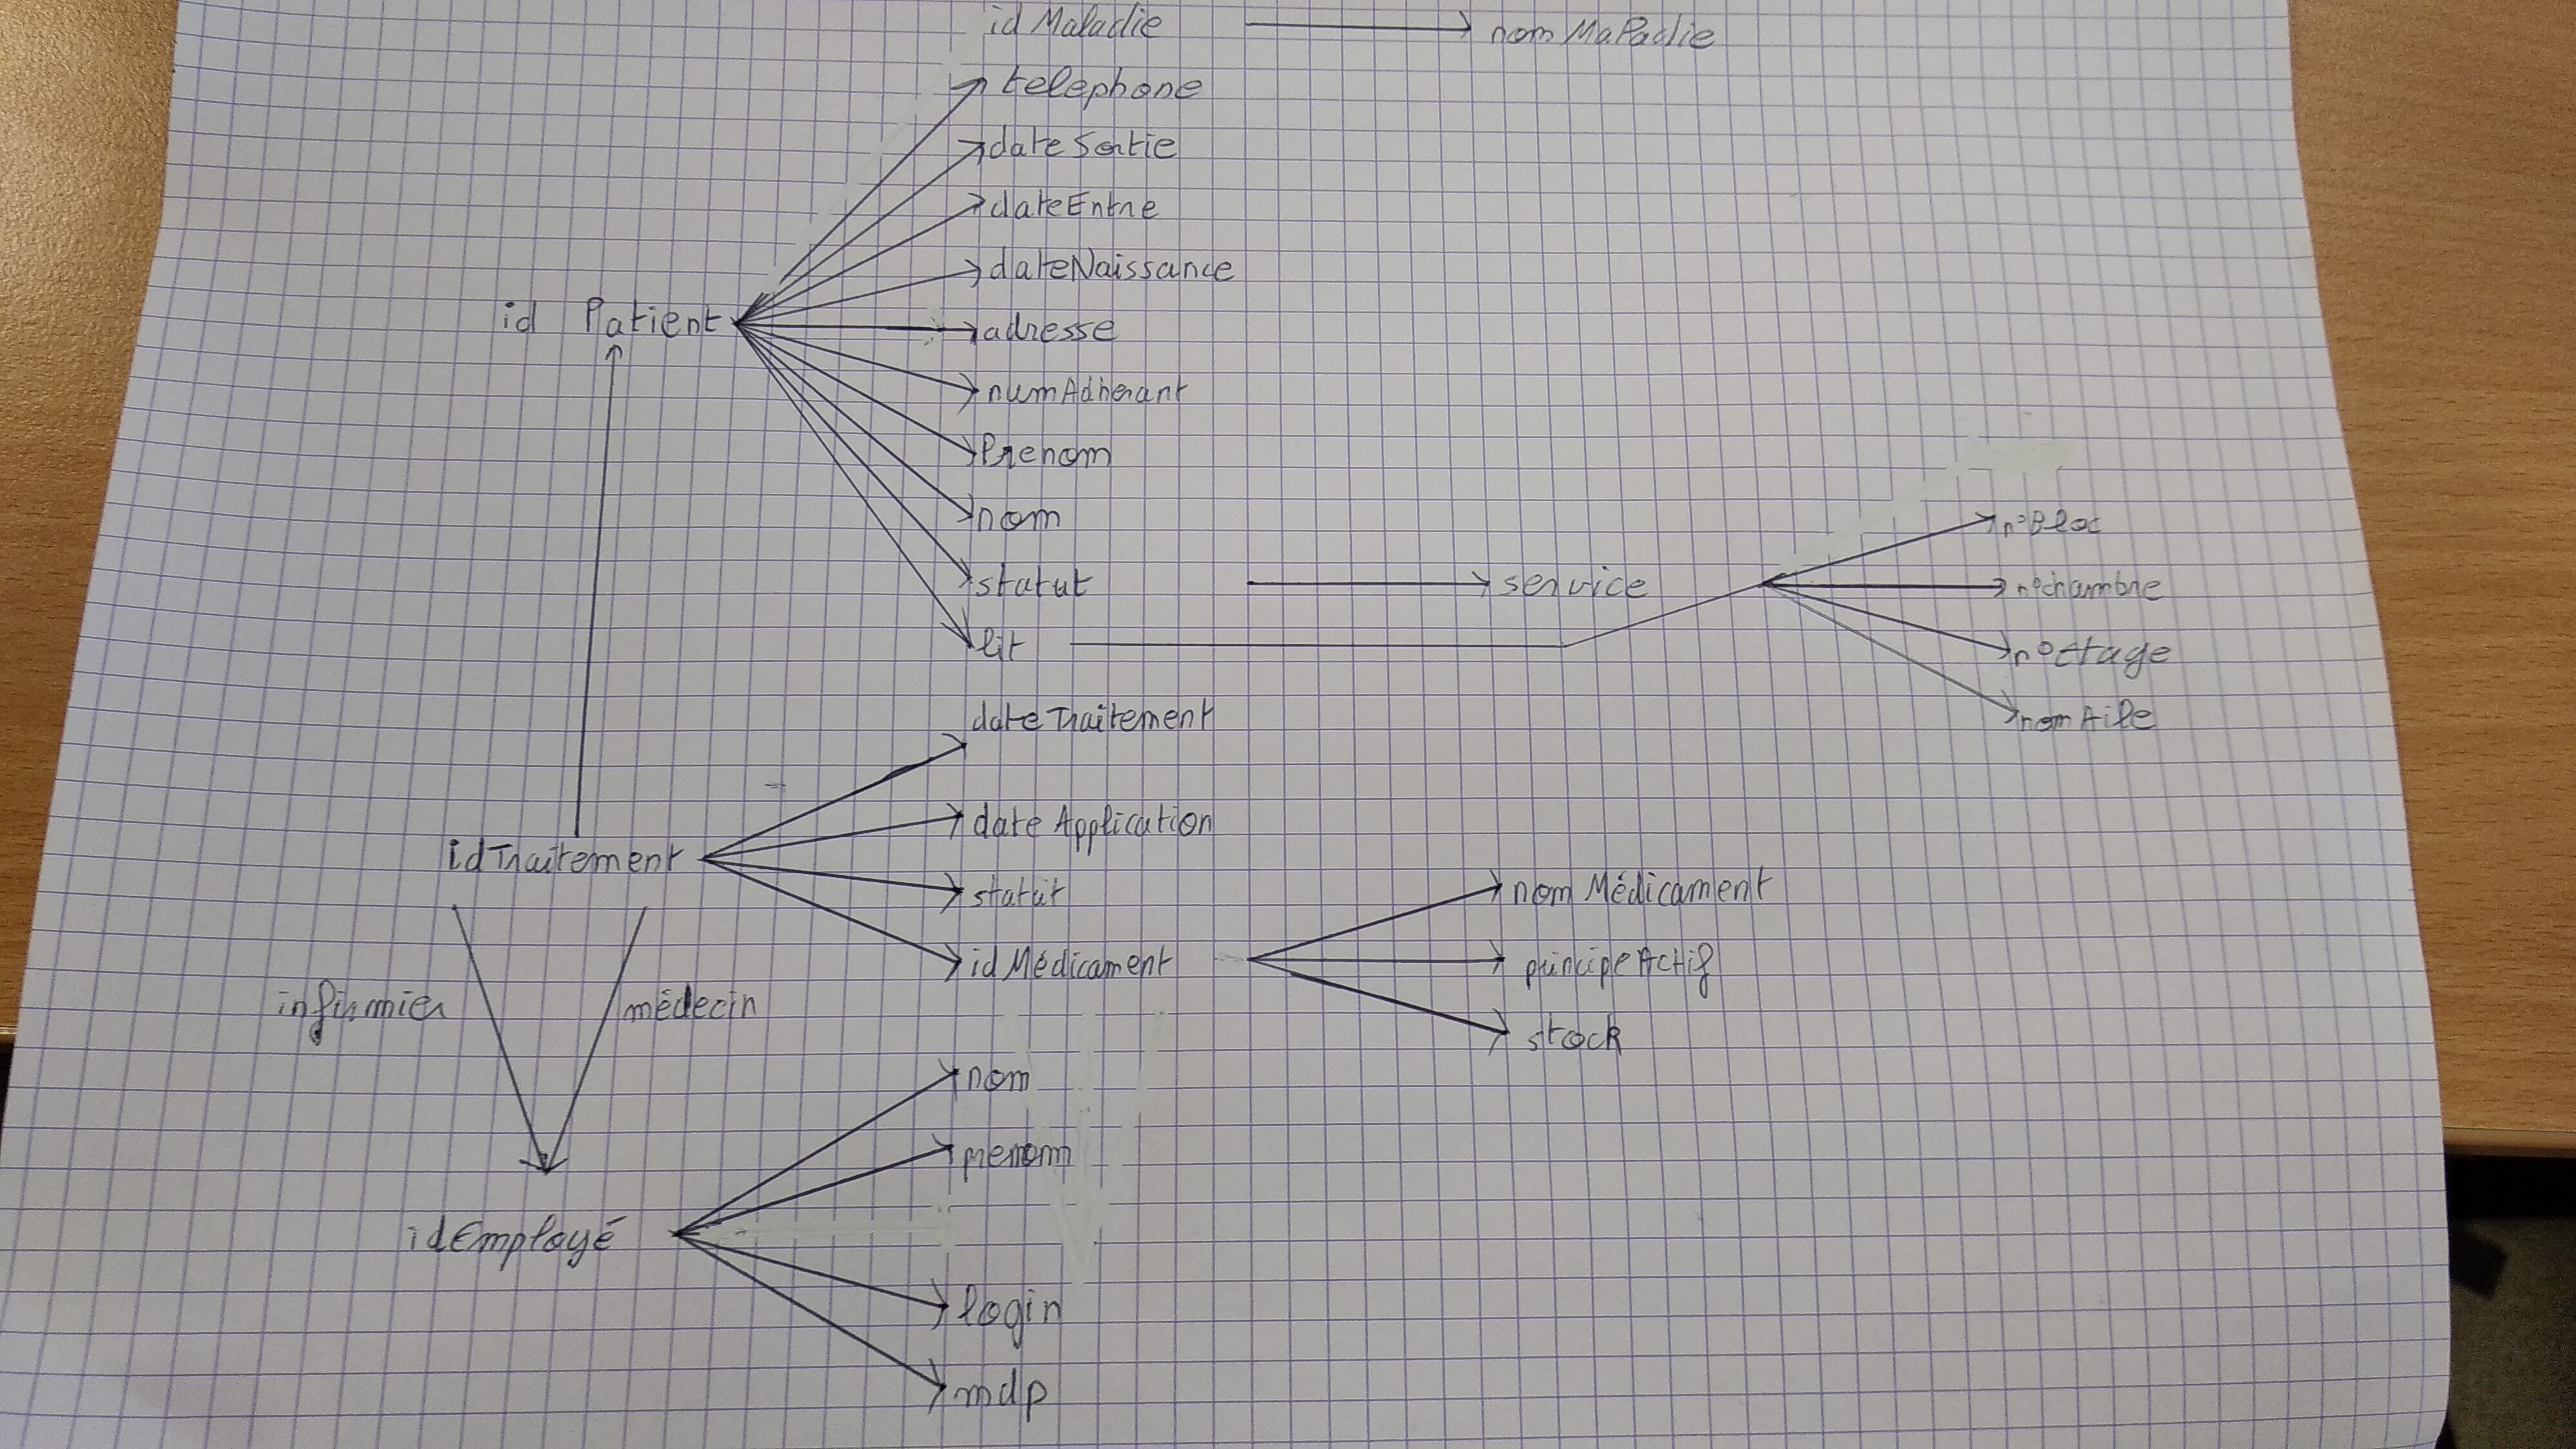 idMaladie nomMaladie
telephone
dateSortie
dateEntre
dateNaissance
id Patient
adresse
numAdherant
Prenom
nom
n°Bloc
statut service n°chambre
lit n°Etage
nomAile
dateTraitement
dateApplication
idTraitement
statut nomMédicament
idMédicament principeActif
infirmier médecin
stock
nom
prenom
idEmployé
login
mdp